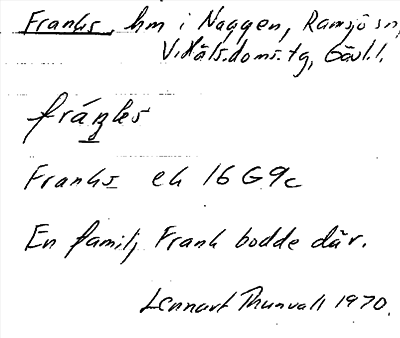 Franks, hm i Naggen, Ramsjö sn,
V. Häls. doms. tg, Gävl. l.
fráŋks
Franks ek 16 G 9c
En familj Frank bodde där.
Lennart Thunvall 1970.